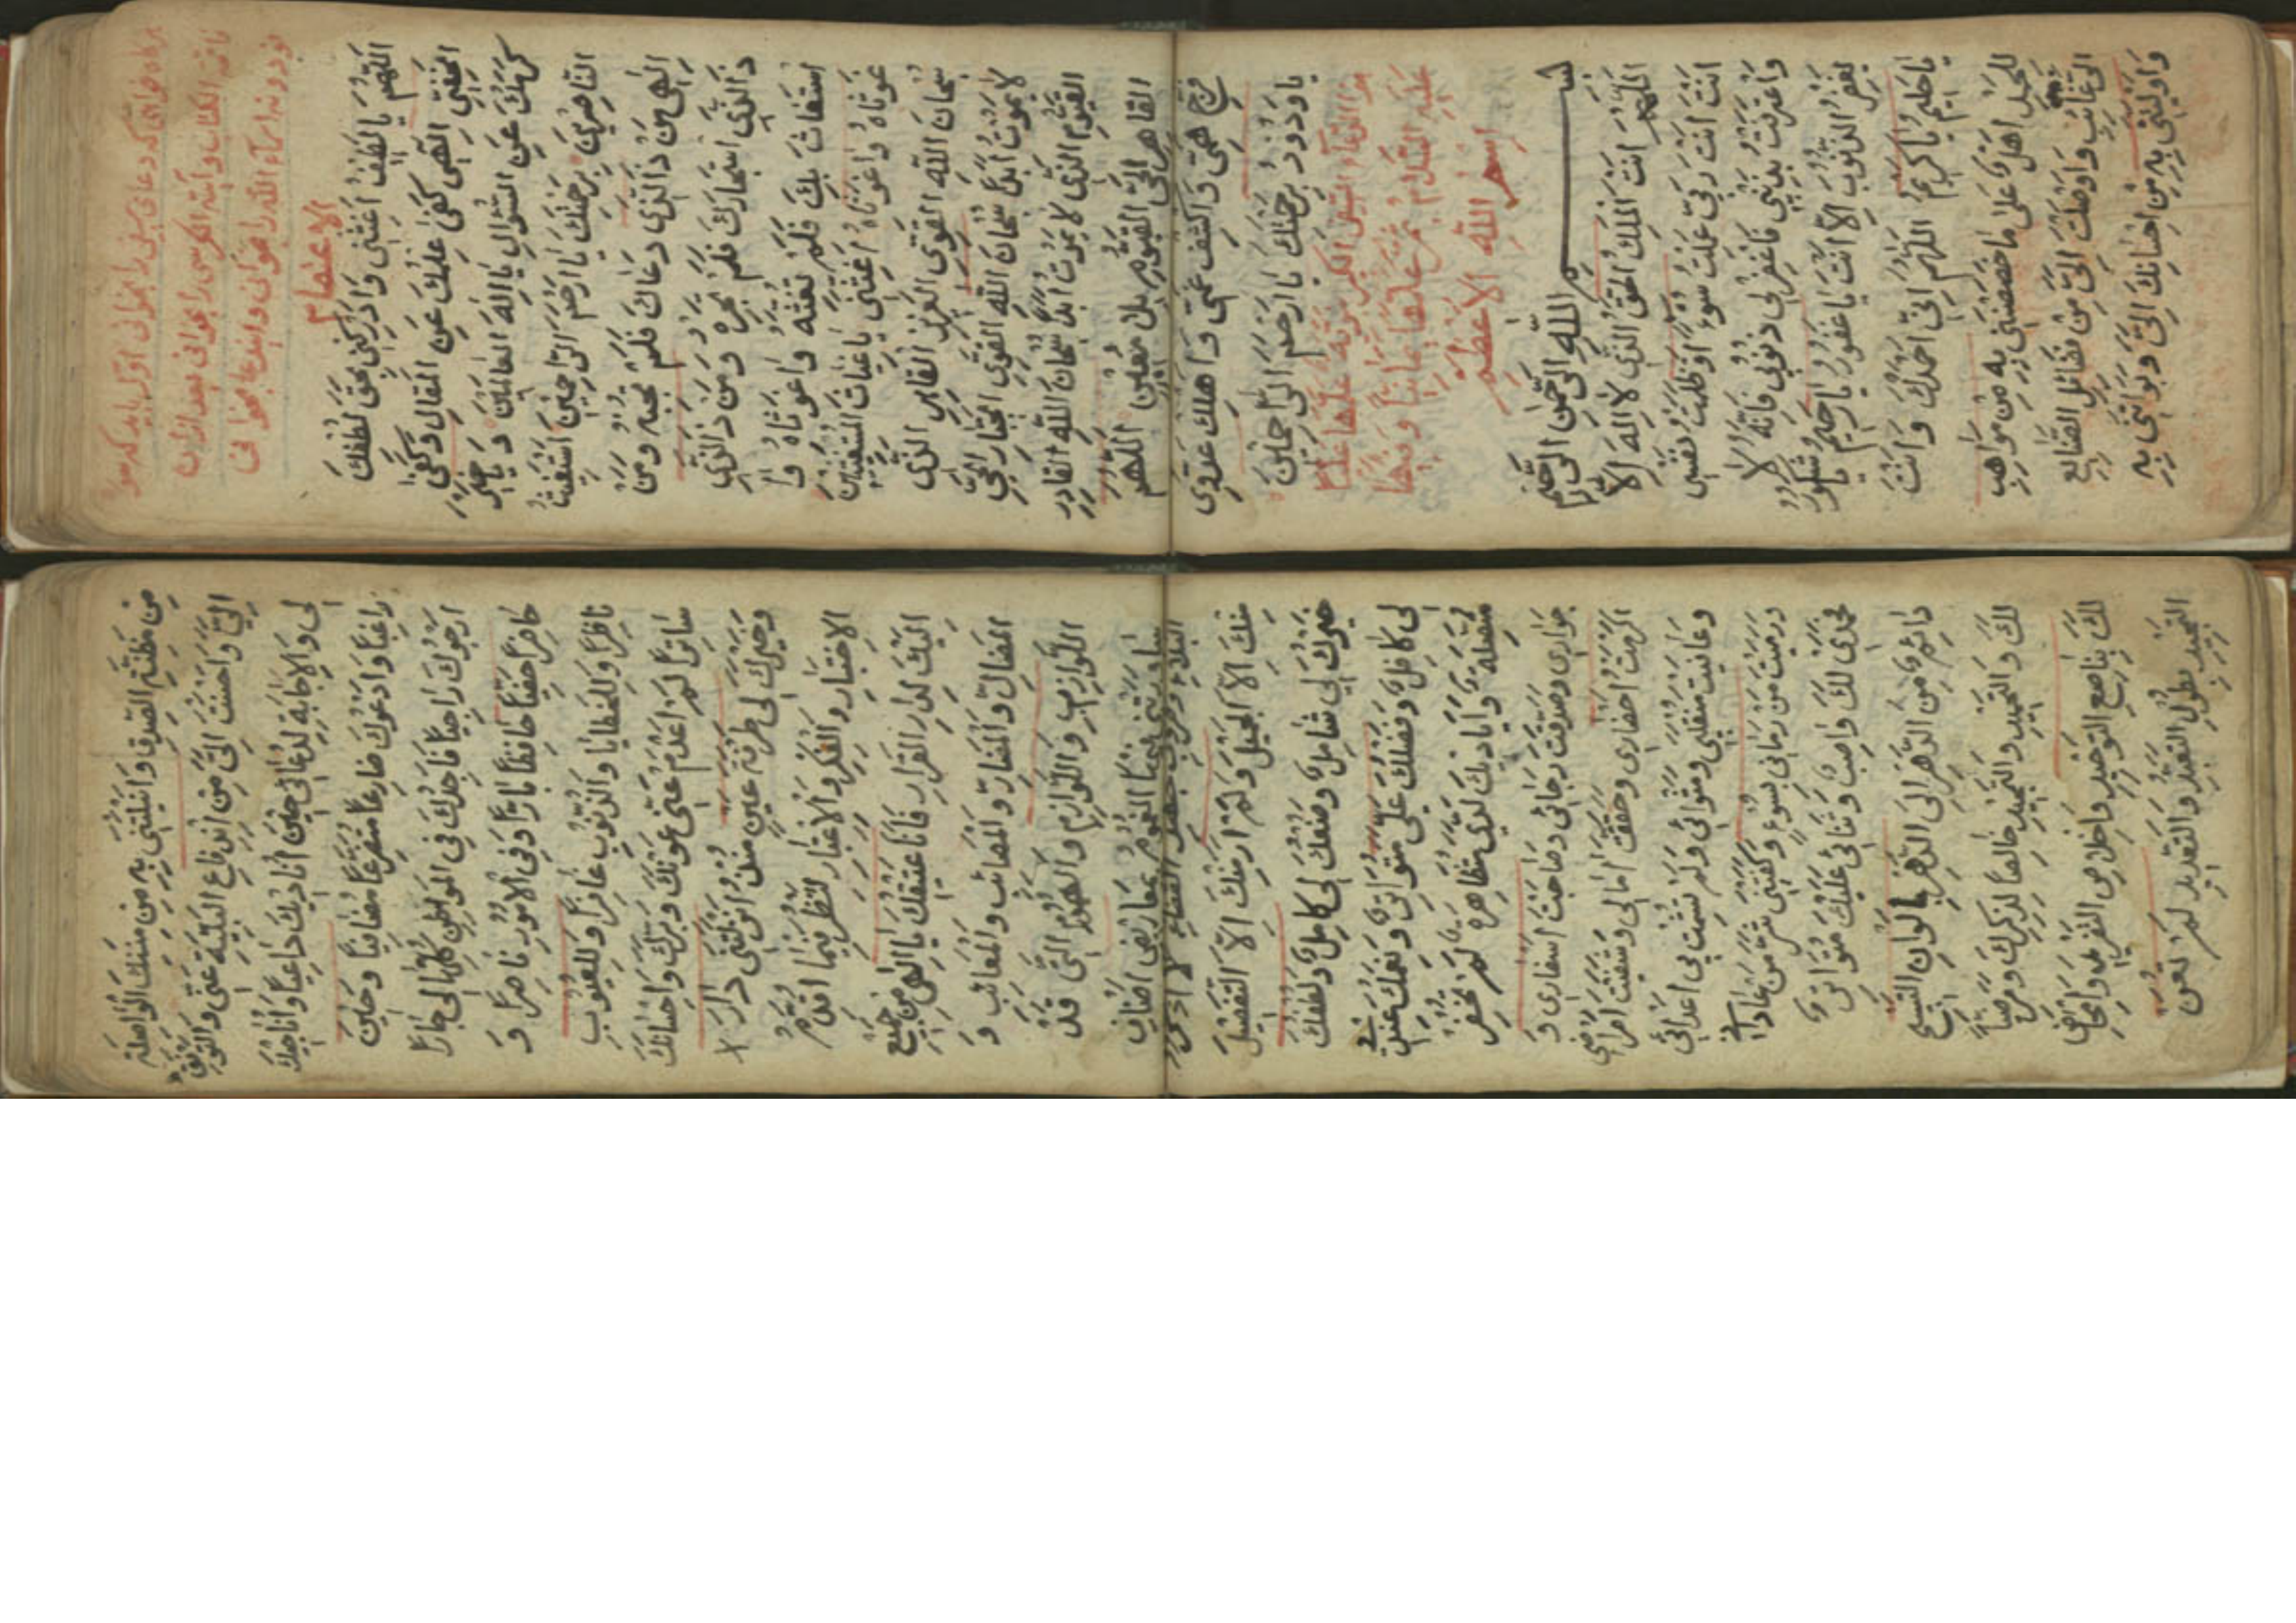 هركاه خواهى كه دعاى سيفى را بخوانى اول بايد كه سوره
فاتحة الكتاب وآية الكرسى را بخوانى بعد ازان
نود ونه اسماء الله را بخوانى واين دعا بخوانى
الاعتصام
اَللّهُمَّ يا لَطيفُ اَغِثْنى وَاَدْرِكْنى بِحَقِّ لُطْفِكَ
الخَفِىِّ اِلهى كَفى عِلْمُكَ عَنِ المَقالِ وَكَفى
كَرَمُكَ عَنِ السُّؤالِ يا اِلهَ العالَمينَ وَيا خَيْرَ
النّاصِرينَ بِرَحْمَتِكَ يا اَرْحَمَ الرّاحِمينَ اَسْتَغيثُ
اِلهى مَنْ ذَالَّذى دَعاكَ فَلَمْ تُجِبْهُ وَمَنْ
ذَالَّذى اسْتَجارَكَ فَلَمْ تُجِرْهُ وَمَنْ ذَالَّذى
اسْتَغاثَ بِكَ فَلَمْ تُغِثْهُ وَاغَوْثاهُ وَا
غَوْثاهُ وَاغَوْثاهُ اَغِثْنى يا غِياثَ المُسْتَغيثينَ
سُبْحانَ اللهِ القَوِىِّ العَزيزِ القاهِرِ الَّذى
لا يَمُوتُ اَبَداً سُبْحانَ اللهِ القَوِىِّ الجَبّارِ الحَىِّ
القَيُّومِ الَّذى لا يَمُوتُ اَبَداً سُبْحانَ اللهِ القادِرِ
القاهِرِ الحَىِّ القَيُّومِ بِلا مُعينٍ اَللّهُمَّ
فَرِّجْ هَمّى وَاكْشِفْ غَمّى وَاَهْلِكْ عَدُوّى
يا وَدُودُ بِرَحْمَتِكَ يا اَرْحَمَ الرّاحِمينَ
هذا الدعاء السيفى الكبير
عليه السلام
اسم الله الاعظم
بسم اللهِ الرَّحْمنِ الرَّحيمِ
اَللّهُمَّ اَنْتَ المَلِكُ الحَقُّ الَّذى لا اِلهَ اِلاّ
اَنْتَ اَنْتَ رَبّى عَمِلْتُ سُوءً وَظَلَمْتُ نَفْسى
وَاعْتَرَفْتُ بِذَنْبى فَاغْفِرْ لى ذُنُوبى فَاِنَّهُ لا
يَغْفِرُ الذُّنُوبَ اِلاّ اَنْتَ يا غَفُورُ يا رَحيمُ يا شَكُورُ
يا حَليمُ يا كَريمُ اَللّهُمَّ اِنّى اَحْمَدُكَ وَاَنْتَ
لِلْحَمْدِ اَهْلٌ عَلى ما خَصَصْتَنى بِهِ مِنْ مَواهِبِ
الرَّغائِبِ وَاَوْصَلْتَ اِلَىَّ مِنْ فَضائِلِ الصَّنائِعِ
وَاَوْلَيْتَنى بِهِ مِنْ اِحْسانِكَ اِلَىَّ وَبَوَّأْتَنى بِهِ
مِنْ مَظَنَّةِ الصِّدْقِ وَاَنَلْتَنى بِهِ مِنْ مِنَنِكَ الواصِلَةِ
اِلَىَّ وَاَحْسَنْتَ اِلَىَّ مِنْ انْدِفاعِ البَلِيَّةِ عَنّى وَالتَّوْفيقِ
لى وَالاِجابَةِ لِدُعائى حينَ اُناديكَ داعِياً وَاُناجيكَ
راغِباً وَاَدْعُوكَ ضارِعاً مُتَضَرِّعاً مُصافِياً وَحينَ
اَرْجُوكَ راجِياً فَاَجِدُكَ فى المَواطِنِ كُلِّها لى جاراً
حاضِراً حَفِيّاً بارّاً وَفى الاُمُورِ ناصِراً وَ
ناظِراً وَلِلْخَطايا وَالذُّنُوبِ غافِراً وَلِلْعُيُوبِ
ساتِراً لَمْ اَعْدَمْ عَوْنَكَ وَبِرَّكَ وَاِحْسانَكَ
وَخَيْرَكَ لى طَرْفَةَ عَيْنٍ مُنْذُ اَنْزَلْتَنى دارَ
الاِخْتِبارِ وَالفِكْرِ وَالاِعْتِبارِ لِتَنْظُرَ فيما اُقَدِّمُ
اِلَيْكَ لِدارِ القَرارِ فَاَنَا عَتيقُكَ يا اِلهى مِنْ جَميعِ
المَضالِّ وَالمَضارِّ وَالمَصائِبِ وَالمَعائِبِ وَ
اللَّوازِبِ وَاللَّوازِمِ وَالهُمُومِ الَّتى قَدْ
ساوَرَتْنى فيهَا الغُمُومُ بِمَعاريضِ اَصْنافِ
البَلاءِ وَضُرُوبِ جَهْدِ القَضاءِ لا اَذْكُرُ
مِنْكَ اِلاَّ الجَميلَ وَلَمْ اَرَ مِنْكَ اِلاَّ التَّفْضيلَ
خَيْرُكَ لى شامِلٌ وَصُنْعُكَ لى كامِلٌ وَلُطْفُكَ
لى كافِلٌ وَفَضْلُكَ عَلَىَّ مُتَواتِرٌ وَنِعَمُكَ عِنْدى
مُتَّصِلَةٌ وَاَياديكَ لَدَىَّ مُتَظاهِرَةٌ لَمْ تُخْفِرْ
جِوارى وَصَدَّقْتَ رَجائى وَصاحَبْتَ اَسْفارى وَ
اَكْرَمْتَ اَحْضارى وَحَقَّقْتَ امالى وَشَفَيْتَ اَمْراضى
وَعافَيْتَ مُنْقَلَبى وَمَثْواىَ وَلَمْ تُشْمِتْ بى اَعْدائى
وَرَمَيْتَ مَنْ رَمانى بِسُوءٍ وَكَفَيْتَنى شَرَّ مَنْ عادانى
فَحَمْدى لَكَ واصِبٌ وَثَنائى عَلَيْكَ مُتَواتِرٌ
دائِمٌ مِنَ الدَّهْرِ اِلَى الدَّهْرِ بِاَلْوانِ التَّسْبيحِ
لَكَ وَالتَّحْميدِ وَالتَّمْجيدِ خالِصاً لِذِكْرِكَ وَمَرْضِيّاً
لَكَ بِناصِعِ التَّوْحيدِ وَاِخْلاصِ التَّفْريدِ وَاِمْحاضِ
التَّمْجيدِ بِطُولِ التَّعَبُّدِ وَالتَّعْديدِ لَمْ تُعَنْ